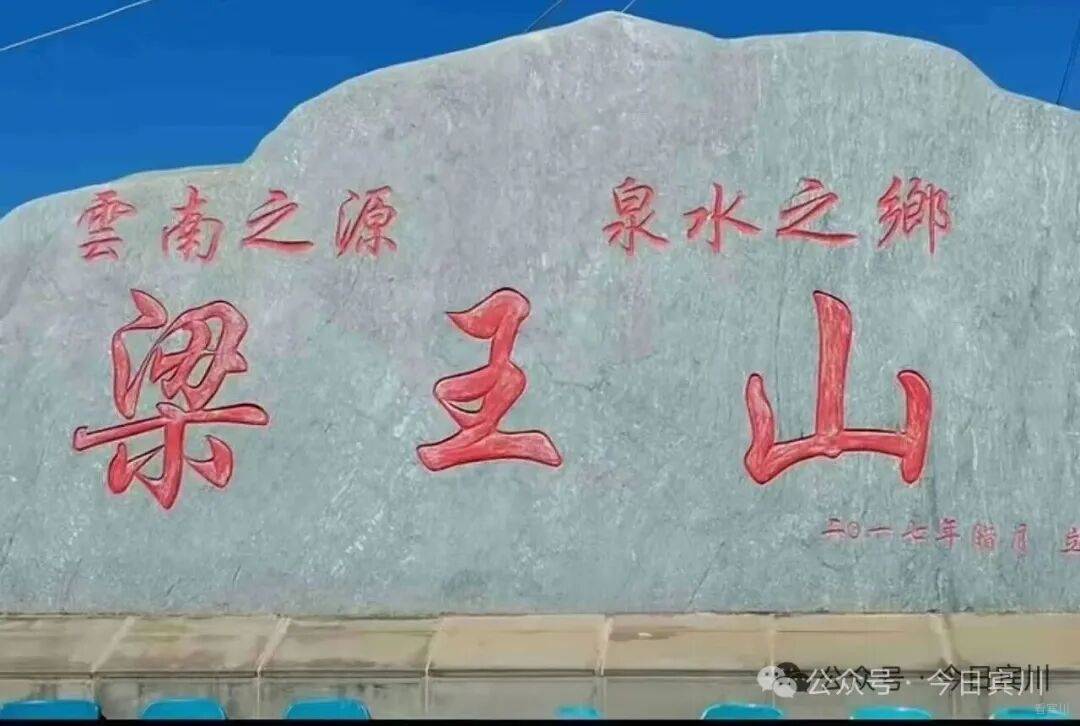 雲南之源 泉水之鄉
梁王山
二〇一七年腊月 立
公众号·今日宾川
看宾川